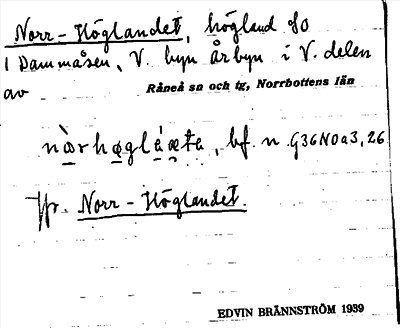 Norr-Höglandet, högland SO
I Dammåsen, V. byn Årbyn i V. delen
av Råneå sn och tg, Norrbottens län
bf. n. G36N0a3,26
Jfr. Norr-Höglandet.
EDVIN BRÄNNSTRÖM 1939